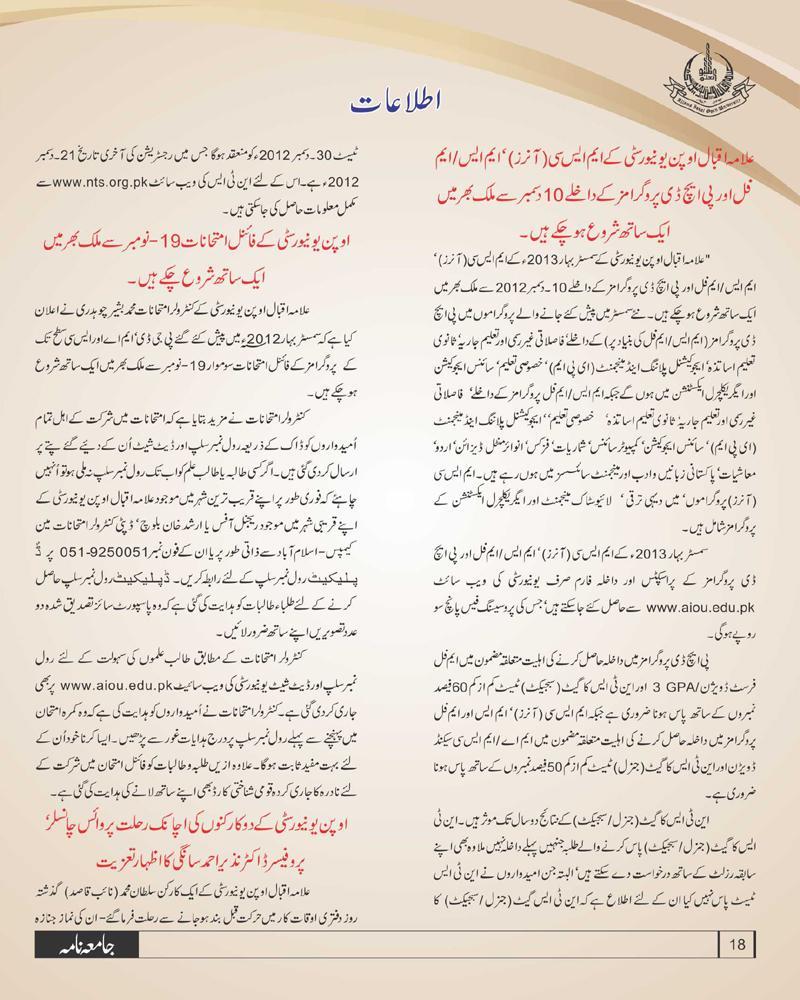 Allama Iqbal Open University
اطلاعات
علامہ اقبال اوپن یونیورسٹی کے ایم ایس سی (آنرز)‘ ایم ایس/ایم
فل اور پی ایچ ڈی پروگرامز کے داخلے 10 دسمبر سے ملک بھر میں
ایک ساتھ شروع ہوچکے ہیں۔
"علامہ اقبال اوپن یونیورسٹی کے سمسٹر بہار 2013ء کے ایم ایس سی (آنرز)‘
ایم ایس/ایم فل اور پی ایچ ڈی پروگرامز کے داخلے 10۔دسمبر 2012 سے ملک بھر میں
ایک ساتھ شروع ہوچکے ہیں۔ نئے سمسٹر میں پیش کئے جانے والے پروگراموں میں پی ایچ
ڈی پروگرامز (ایم ایس/ایم فل کی بنیاد پر) کے داخلے‘ فاصلاتی غیررسمی اور تعلیم جاریہ‘ ثانوی
تعلیم اساتذہ‘ ایجوکیشنل پلاننگ اینڈ مینجمنٹ (ای پی ایم)‘ خصوصی تعلیم‘ سائنس ایجوکیشن
اور ایگریکلچرل ایکسٹنشن میں ہوں گے جبکہ ایم ایس/ایم فل پروگرامز کے داخلے‘ فاصلاتی
غیررسمی اور تعلیم جاریہ‘ ثانوی تعلیم اساتذہ‘ خصوصی تعلیم‘‘ ایجوکیشنل پلاننگ اینڈ مینجمنٹ
(ای پی ایم)‘ سائنس ایجوکیشن‘ کمپیوٹر سائنس‘ شماریات‘ فزکس‘ انوائرمنٹل ڈیزائن‘ اردو‘
معاشیات‘ پاکستانی زبانیں وادب اور مینجمنٹ سائنسز میں ہورہے ہیں۔ ایم ایس سی
(آنرز) پروگراموں‘ میں دیہی ترقی‘ لائیوسٹاک مینجمنٹ اور ایگریکلچرل ایکسٹنشن کے
پروگرامز شامل ہیں۔
سمسٹر بہار 2013ء کے ایم ایس سی (آنرز)‘ ایم ایس/ایم فل اور پی ایچ
ڈی پروگرامز کے پراسپکٹس اور داخلہ فارم صرف یونیورسٹی کی ویب سائٹ
www.aiou.edu.pk سے حاصل کئے جاسکتے ہیں‘ جس کی پروسیسنگ فیس پانچ سو
روپے ہوگی۔
پی ایچ ڈی پروگرامز میں داخلہ حاصل کرنے کی اہلیت متعلقہ مضمون میں ایم فل
فرسٹ ڈویژن/GPA 3 اور این ٹی ایس کا گیٹ (سبجیکٹ) ٹیسٹ کم از کم 60 فیصد
نمبروں کے ساتھ پاس ہونا ضروری ہے جبکہ ایم ایس سی (آنرز)‘ ایم ایس اور ایم فل
پروگرامز میں داخلہ حاصل کرنے کی اہلیت متعلقہ مضمون میں ایم اے/ایم ایس سی سیکنڈ
ڈویژن اور این ٹی ایس کا گیٹ (جنرل) ٹیسٹ کم از کم 50 فیصد نمبروں کے ساتھ پاس ہونا
ضروری ہے۔
این ٹی ایس کا گیٹ (جنرل/سبجیکٹ) کے نتائج دو سال تک موثر ہیں۔ این ٹی
ایس کا گیٹ (جنرل/سبجیکٹ) پاس کرنے والے طلبہ جنہیں پہلے داخلہ نہیں ملا وہ بھی اپنے
سابقہ رزلٹ کے ساتھ درخواست دے سکتے ہیں‘ البتہ جن امیدواروں نے این ٹی ایس
ٹیسٹ پاس نہیں کیا ان کے لئے اطلاع ہے کہ این ٹی ایس گیٹ (جنرل/سبجیکٹ) کا
ٹیسٹ 30۔دسمبر 2012ء کو منعقد ہوگا جس میں رجسٹریشن کی آخری تاریخ 21۔دسمبر
2012ء ہے۔ اس کے لئے این ٹی ایس کی ویب سائٹ www.nts.org.pk سے
مکمل معلومات حاصل کی جاسکتی ہیں۔
اوپن یونیورسٹی کے فائنل امتحانات 19-نومبر سے ملک بھر میں
ایک ساتھ شروع چکے ہیں۔
علامہ اقبال اوپن یونیورسٹی کے کنٹرولر امتحانات محمد بشیر چوہدری نے اعلان
کیا ہے کہ سمسٹر بہار 2012ء میں پیش کئے گئے پی جی ڈی‘ ایم اے اور ایس سی سطح تک
کے پروگرامز کے فائنل امتحانات سوموار 19-نومبر سے ملک بھر میں ایک ساتھ شروع
ہوچکے ہیں۔
کنٹرولر امتحانات نے مزید بتایا ہے کہ امتحانات میں شرکت کے اہل تمام
اُمیدواروں کو ڈاک کے ذریعہ رول نمبر سلپ اور ڈیٹ شیٹ اُن کے دئیے گئے پتے پر
ارسال کر دی گئی ہیں۔ اگر کسی طالبہ یا طالب علم کو اب تک رول نمبر سلپ نہ ملی ہو تو اُنہیں
چاہئے کہ فوری طور پر اپنے قریب ترین شہر میں موجود علامہ اقبال اوپن یونیورسٹی کے
اپنے قریبی شہر میں موجود ریجنل آفس یا ارشد خان بلوچ‘ ڈپٹی کنٹرولر امتحانات مین
کیمپس-اسلام آباد سے ذاتی طور پر یا ان کے فون نمبر 051-9250051 پر ڈُ
پلیکیٹ رول نمبر سلپ کے لئے رابطہ کریں۔ ڈپلیکیٹ رول نمبر سلپ حاصل
کرنے کے لئے طلباء طالبات کو ہدایت کی گئی ہے کہ وہ پاسپورٹ سائز تصدیق شدہ دو
عدد تصویریں اپنے ساتھ ضرور لائیں۔
کنٹرولر امتحانات کے مطابق طالب علموں کی سہولت کے لئے رول
نمبر سلپ اور ڈیٹ شیٹ یونیورسٹی کی ویب سائیٹ www.aiou.edu.pk پر بھی
جاری کر دی گئی ہے۔ کنٹرولر امتحانات نے اُمیدواروں کو ہدایت کی ہے کہ وہ کمرہ امتحان
میں پہنچنے سے پہلے رول نمبر سلپ پر درج ہدایات غور سے پڑھیں۔ ایسا کرنا خود اُن کے
لئے بہت مفید ثابت ہوگا۔ علاوہ ازیں طلبہ وطالبات کو فائنل امتحان میں شرکت کے
لئے نادرہ کا جاری کردہ قومی شناختی کارڈ بھی اپنے ساتھ لانے کی ہدایت کی گئی ہے۔
اوپن یونیورسٹی کے دو کارکنوں کی اچانک رحلت پر وائس چانسلر‘
پروفیسر ڈاکٹر نذیر احمد سانگی کا اظہار تعزیت
علامہ اقبال اوپن یونیورسٹی کے ایک کارکن سلطان محمد (نائب قاصد) گذشتہ
روز دفتری اوقات کار میں حرکت قلب بند ہوجانے سے رحلت فرما گئے- ان کی نماز جنازہ
جامعہ نامہ
18